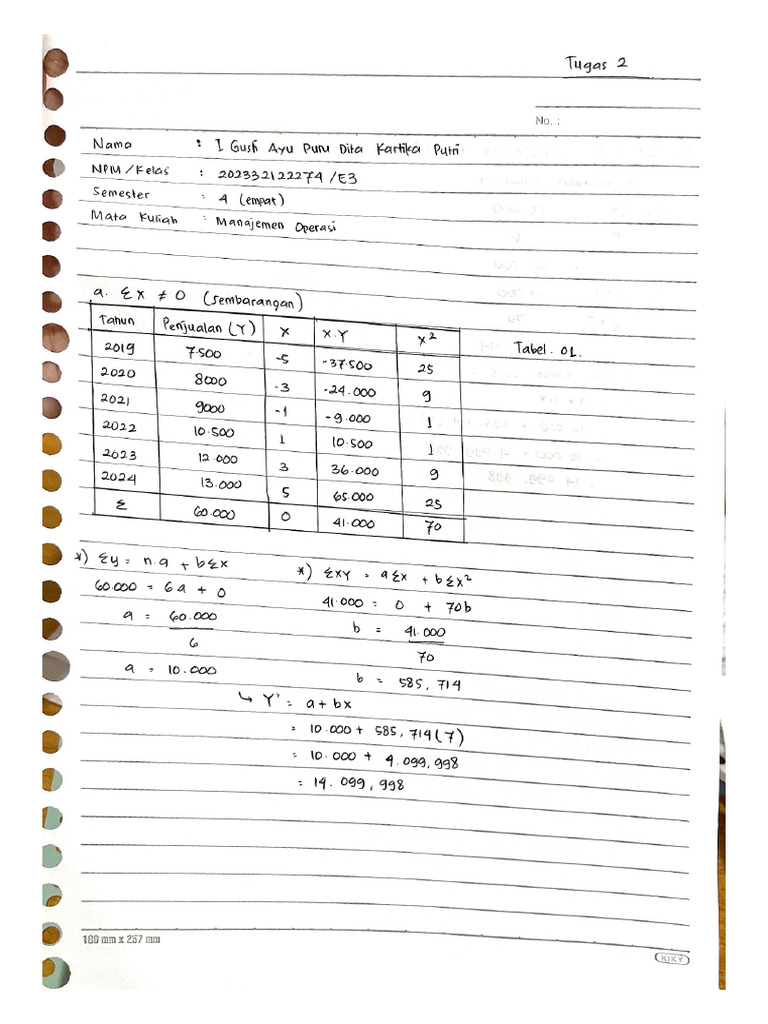 Tugas 2
No. :
Nama : I Gusti Ayu Puru Dita Kartika Putri
NPM/Kelas : 202332122274 /E3
Semester : 4 (empat)
Mata Kuliah : Manajemen Operasi
a. Σx ≠ 0 (sembarangan)
Tahun Penjualan (Y) X X.Y X²
Tabel. 01.
2019 7.500 -5 -37.500 25
2020 8000 -3 -24.000 9
2021 9000 -1 -9.000 1
2022 10.500 1 10.500 1
2023 12.000 3 36.000 9
2024 13.000 5 65.000 25
Σ 60.000 0 41.000 70
*) Σy = n.a + bΣx
60.000 = 6a + 0
a = 60.000
6
a = 10.000
*) Σxy = aΣx + bΣx²
41.000 = 0 + 70b
b = 41.000
70
b = 585,714
↳ Y' = a + bx
= 10.000 + 585,714(7)
= 10.000 + 4.099,998
= 14.099,998
180 mm x 257 mm
KIKY